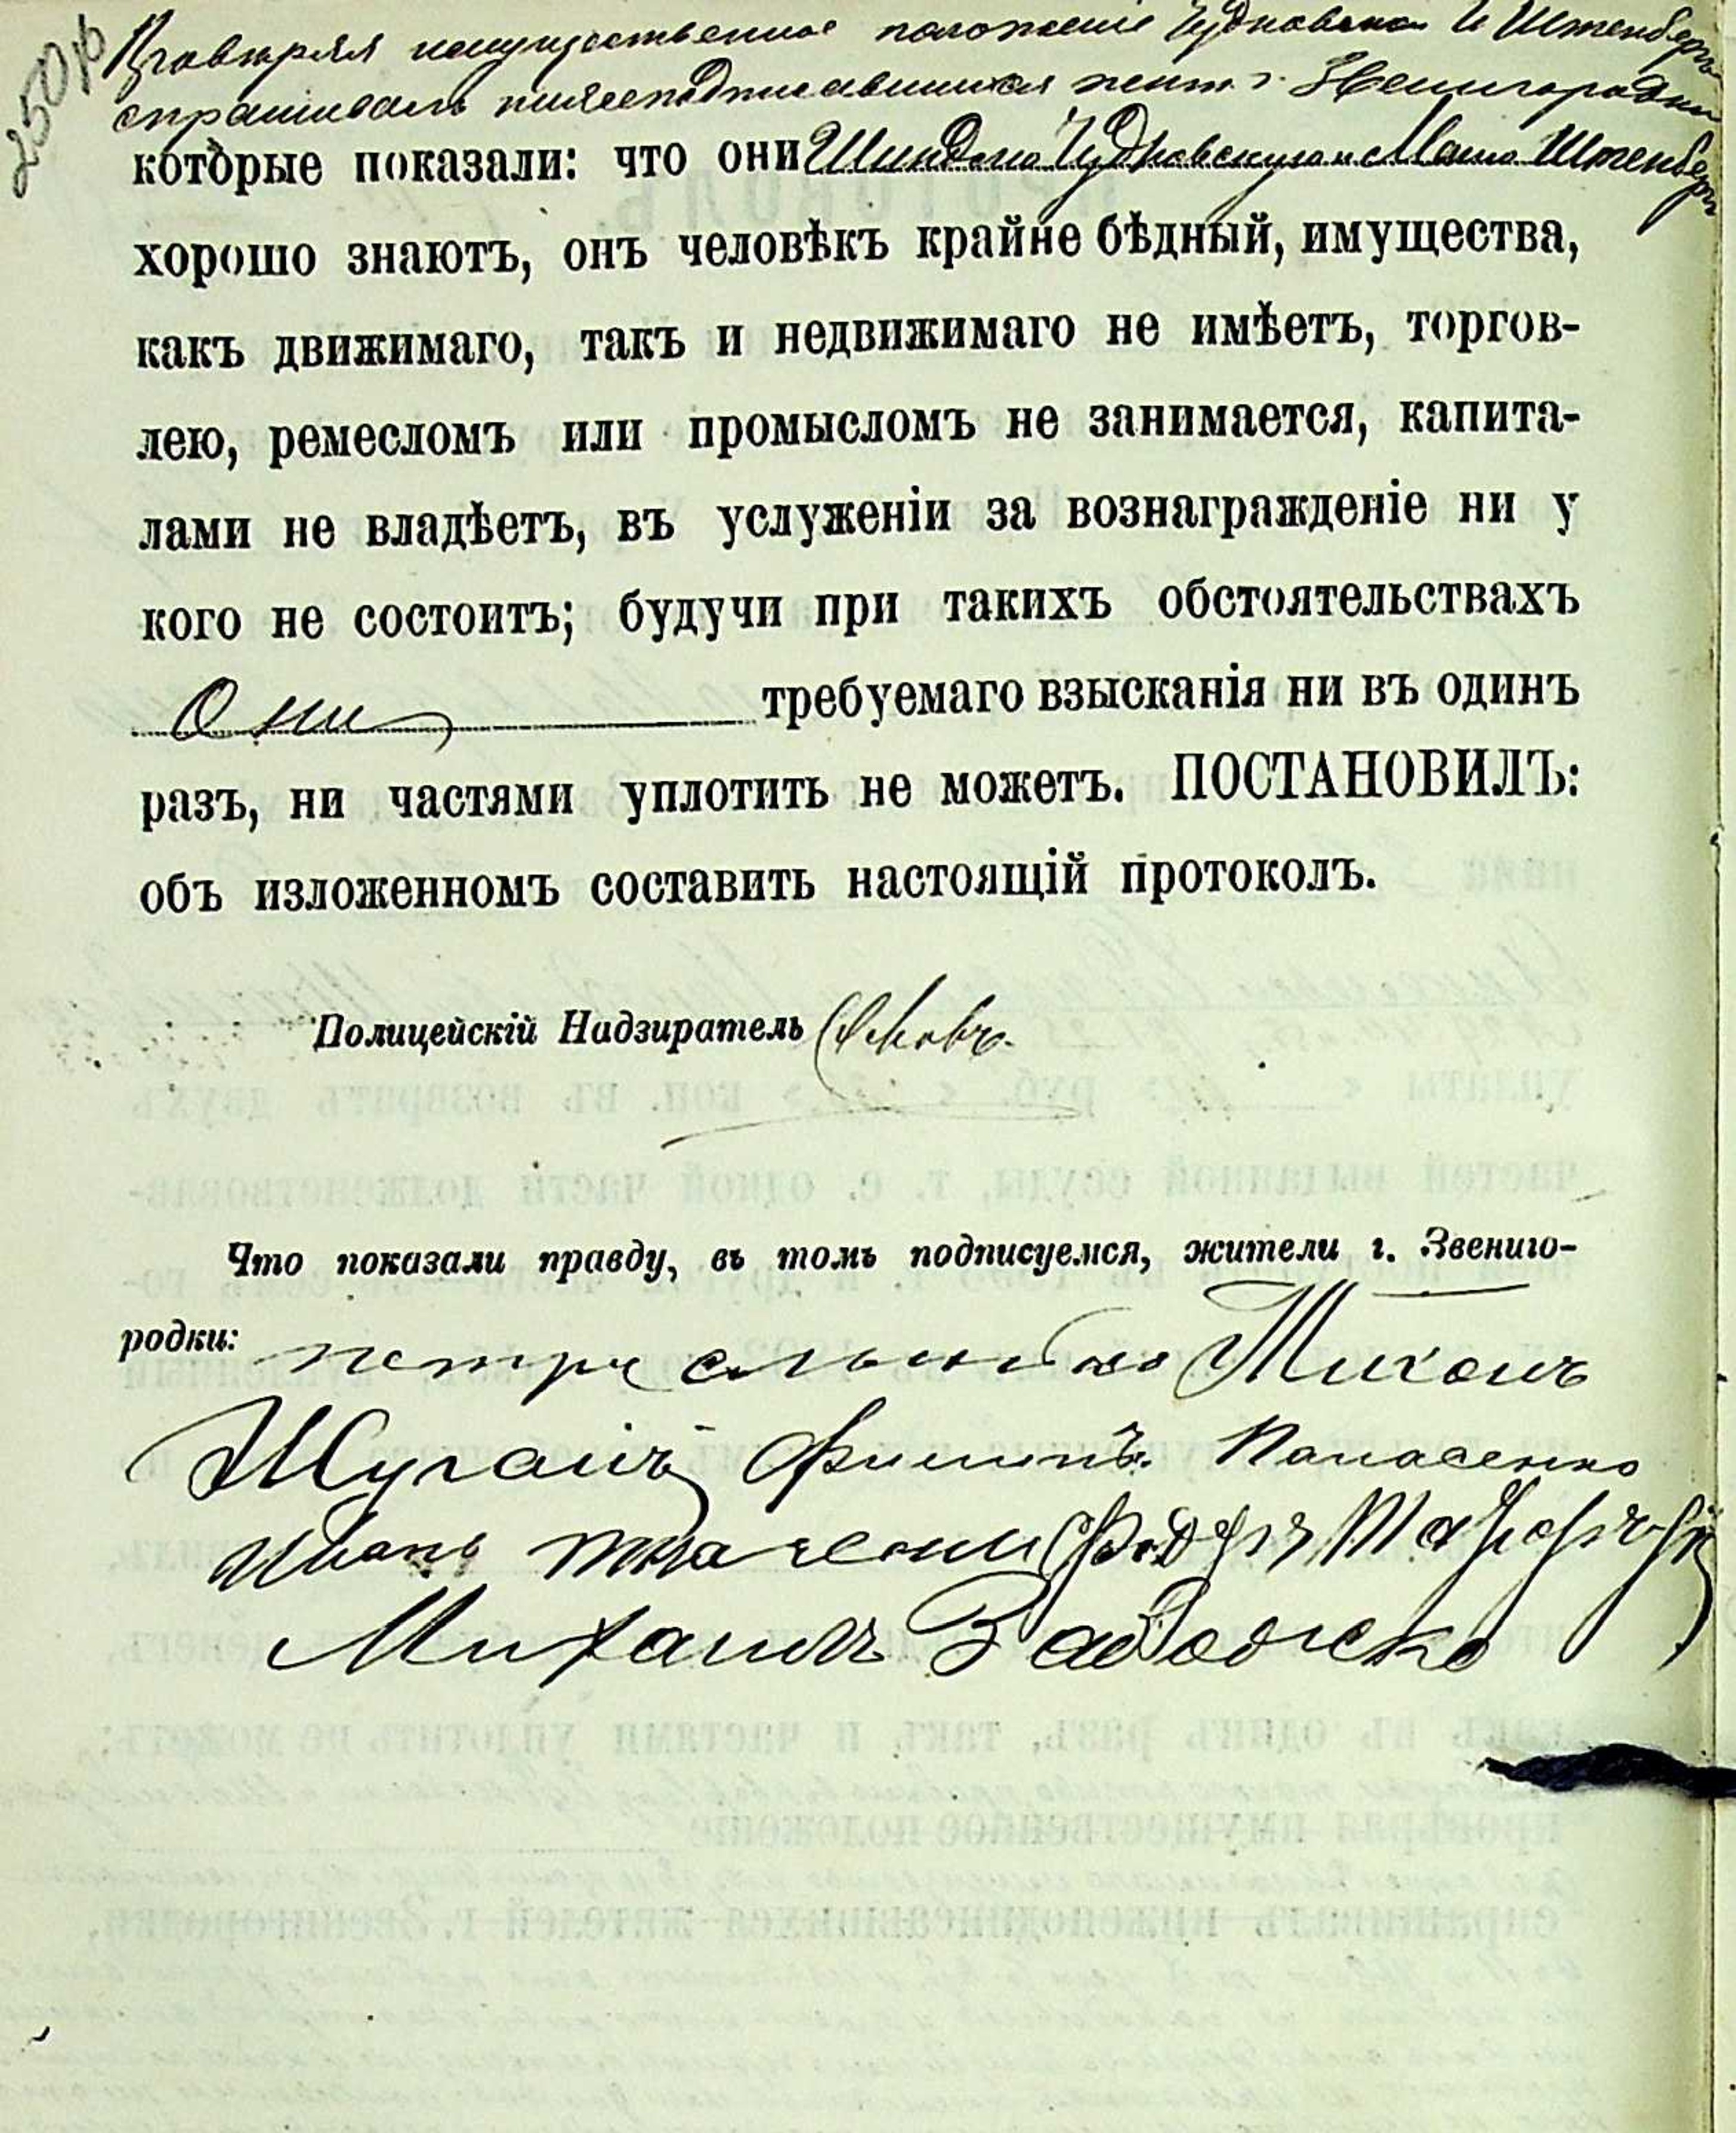 250 об
Провѣряя имущественное положеніе Чудновской и Штенбергъ
спрашивалъ нижеподписавшихся жит. г. Звенигородки
которые показали: что они Шиндлю Чудновскую и Маню Штенбергъ
хорошо знаютъ, онъ человѣкъ крайне бѣдный, имущества,
какъ движимаго, такъ и недвижимаго не имѣетъ, торгов-
лею, ремесломъ или промысломъ не занимается, капита-
лами не владѣетъ, въ услуженіи за вознагражденіе ни у
кого не состоитъ; будучи при такихъ обстоятельствахъ
Они требуемаго взысканія ни въ одинъ
разъ, ни частями уплотить не можетъ. ПОСТАНОВИЛЪ:
объ изложенномъ составить настоящій протоколъ.
Полицейскій Надзиратель
Что показали правду, въ томъ подписуемся, жители г. Звениго-
родки: петръ Тихонъ
Шугаій Филипъ Панасенко
Иванъ ткаченко Федоръ
Михаилъ